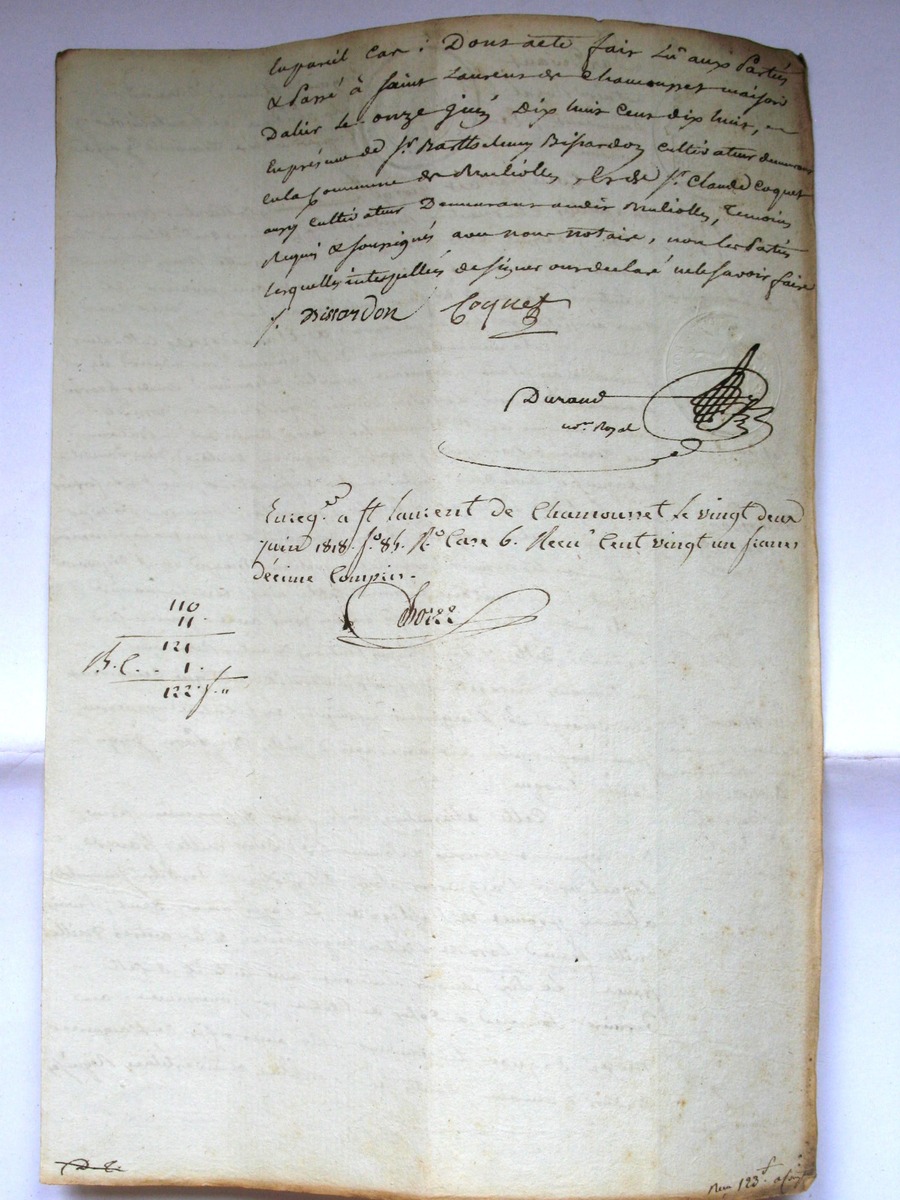 En pareil cas ; Dont acte fait Lû aux Parties
& Passé à Saint Laurent de Chamousset maison
Dalis le onze juin Dix huit cent dix huit, en
la présence de Sr. Barthelemy Bissardon cultivateur demeurant
en la commune de Brulioles, Et de Sr. Claude Coquet
aussy cultivateur Demeurant audit Brulioles, Temoins
Requis & soussignés avec nous notaire, non les Parties
lesquelles interpellées de signer ont declaré ne le savoir faire
Bissardon Coquet
Durand
nore. Royal
Enregé. a St laurent de Chamousset le vingt deux
juin 1818. fo. 85. Ro. Case 6. Recu Cent vingt un francs
décime Compris.
110
11.
121
1.
122. f. "
Reçu 123 f.